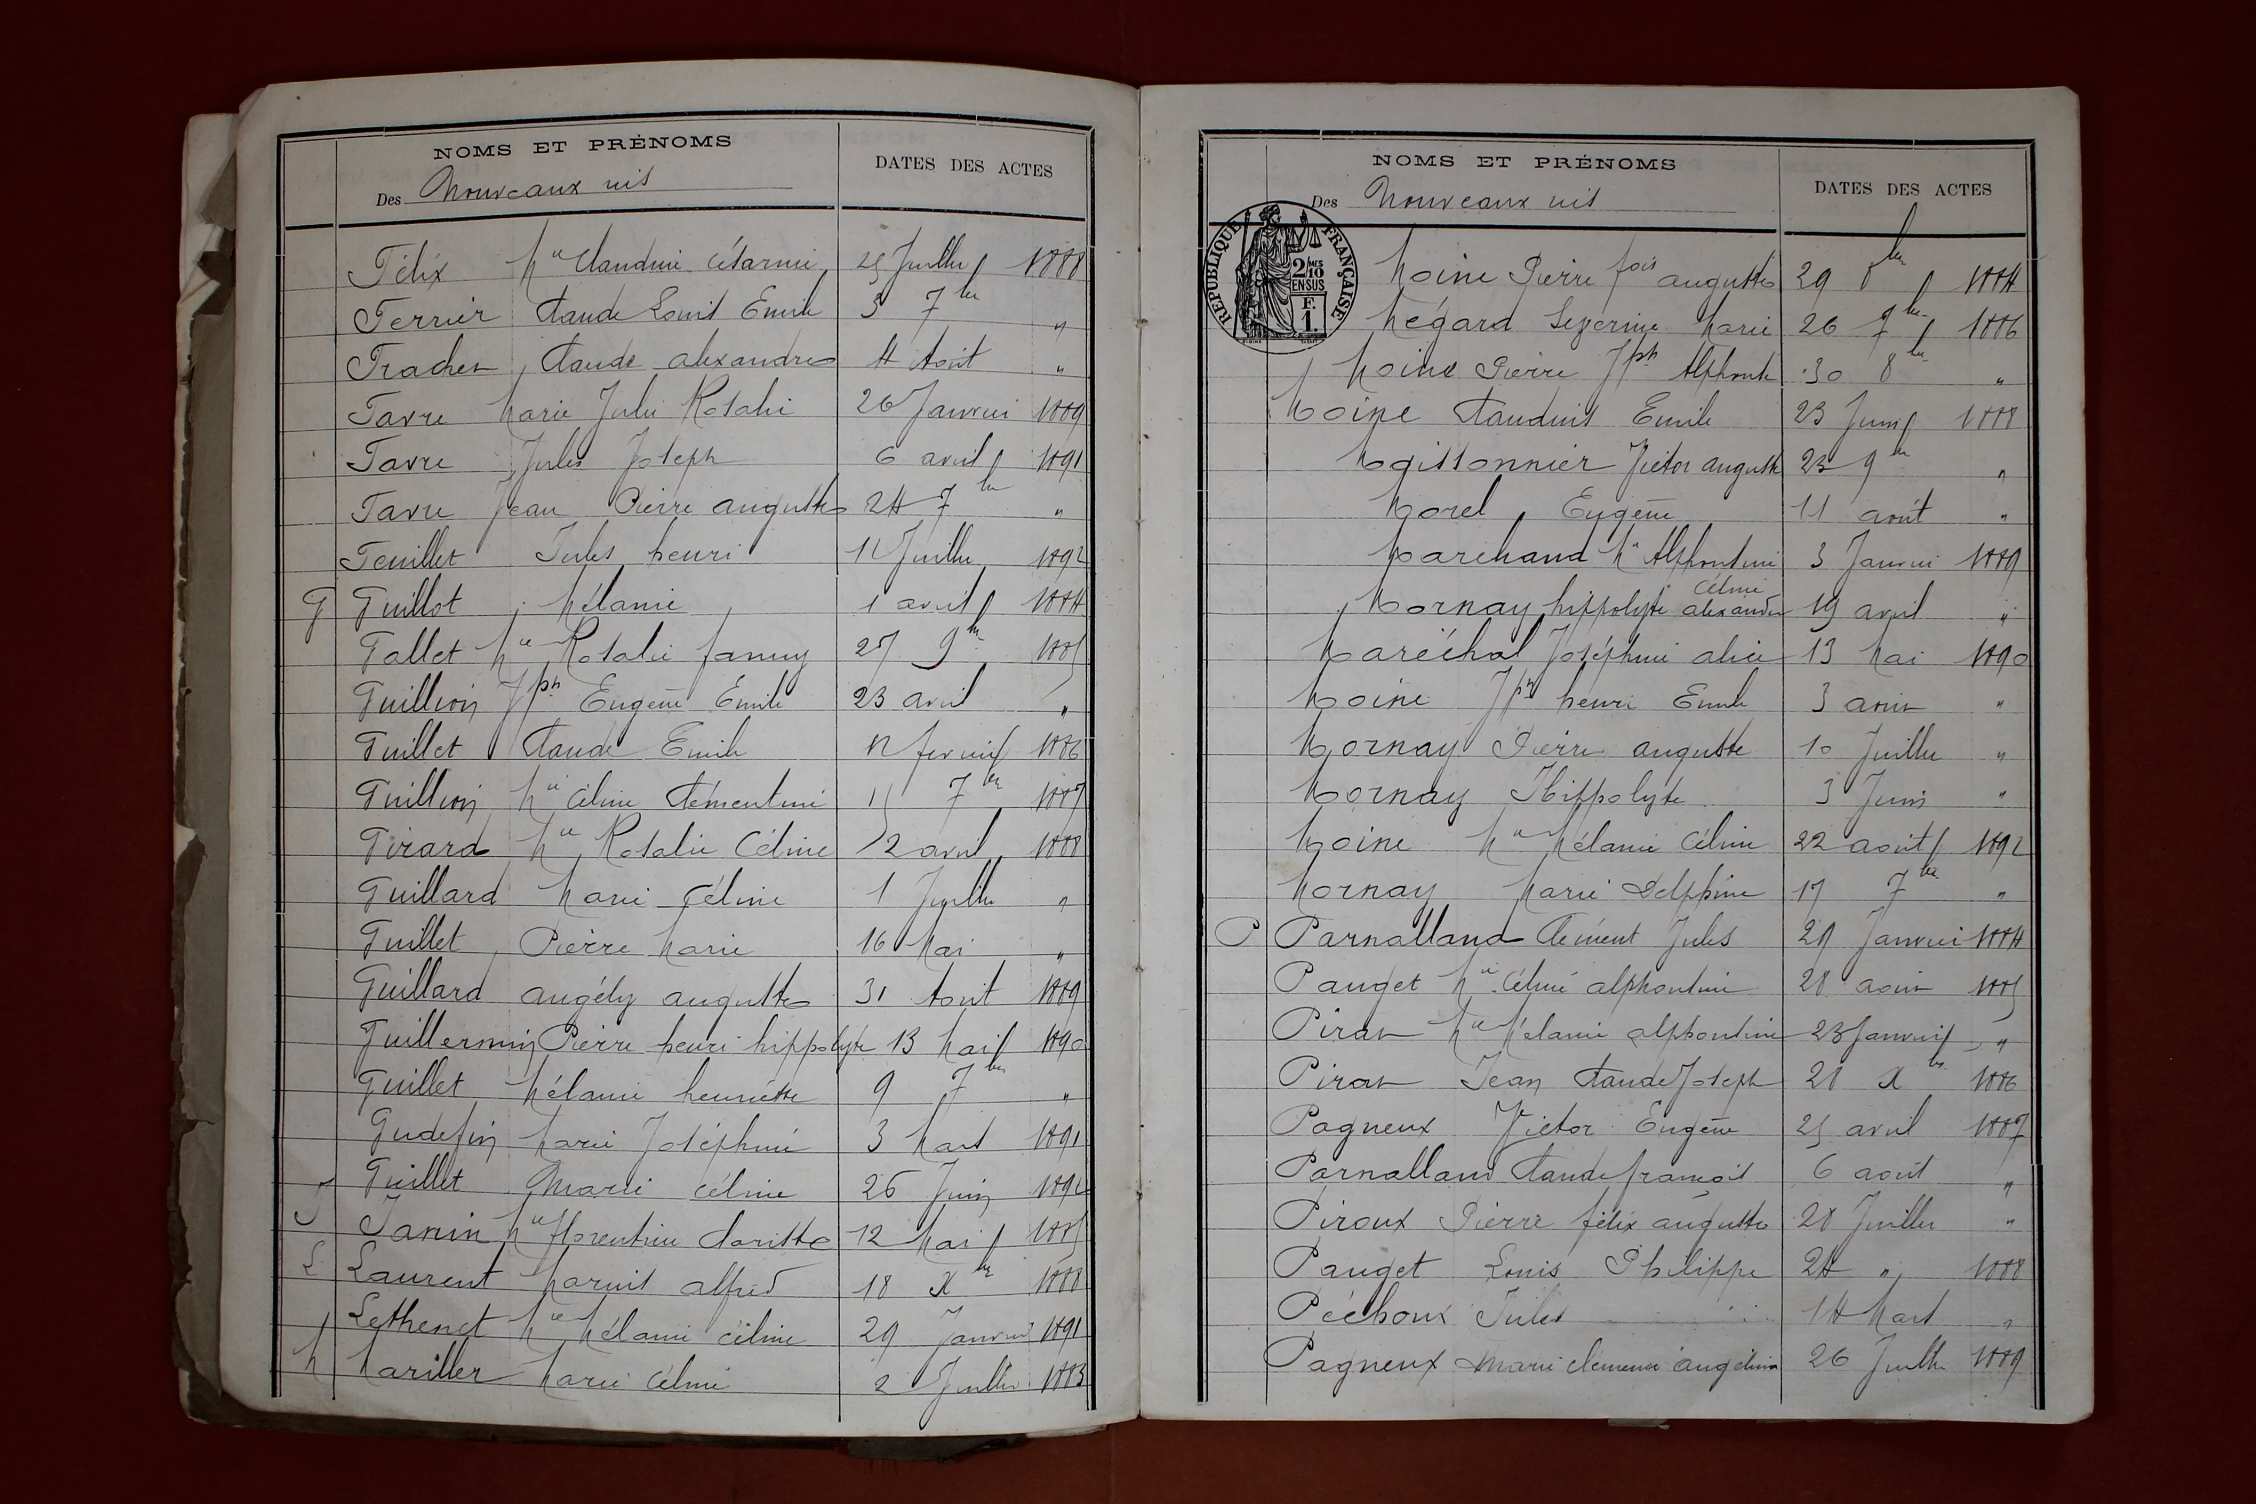 NOMS ET PRÉNOMS
Des Nouveaux nés
DATES DES ACTES
Félix Mie Claudine Césarine 25 Juillet 1888
Ferrier Claude Louis Emile 3 7bre "
Frachet Claude Alexandre 4 Août "
Favre Marie Julie Rosalie 26 Janvier 1889
Favre Jules Joseph 6 avril 1891
Favre Jean Pierre auguste 24 7bre "
Feuillet Jules henri 12 Juillet 1892
G Guillot Mélanie 1 avril 1884
Gallet Mie Rosalie fanny 27 9bre 1885
Guillon Jph Eugène Emile 23 avril "
Guillet Claude Emile 12 fevrier 1886
Guillon Mie Céline Clémentine 15 7bre 1887
Girard Mie Rosalie Céline 2 avril 1888
Guillard Marie Céline 1 Juillet "
Guillet Pierre Marie 16 Mai "
Guillard angély auguste 31 Août 1889
Guillermin Pierre henri hippolyte 13 Mai 1890
Guillet Mélanie henriette 9 7bre "
Gudefin Marie Joséphine 3 Mars 1891
Guillet Marie Céline 26 Juin 1892
J Janin Mie florentine Clarisse 12 Mai 1885
L Laurent Marius alfred 18 Xbre 1888
Lethenet Mie Mélanie Céline 29 Janvier 1891
M Mariller Marie Céline 2 Juillet 1883
NOMS ET PRÉNOMS
Des Nouveaux nés
DATES DES ACTES
RÉPUBLIQUE FRANÇAISE
2/10MES
EN SUS
F.
1.
Moine Pierre fois auguste 29 8bre 1884
Mégard Séverine Marie 26 7bre 1886
Moine Pierre Jph Alphonse 30 8bre "
Moine Claudius Emile 23 Juin 1888
Moissonnier Victor auguste 23 9bre "
Morel Eugène 11 août "
Marchand Mie Alphonsine 3 Janvier 1889
Célini
Mornay hippolyte alexandre 19 avril "
Maréchal Joséphine alice 13 Mai 1890
Moine Jph henri Emile 3 août "
Mornay Pierre auguste 10 Juillet "
Mornay Hippolyte 3 Juin "
Moine Mie Mélanie Céline 22 août 1892
Mornay Marie Delphine 17 7bre "
P Parnalland Clément Jules 29 Janvier 1884
Pauget Mie Céline alphonsine 28 août 1885
Pirat Mie Mélanie alphonsine 23 Janvier "
Pirat Jean Claude Joseph 28 Xbre 1886
Pagneux Victor Eugène 25 avril 1887
Parnalland Claude françois 6 août "
Piroux Pierre félix auguste 28 Juillet "
Pauget Louis Philippe 24 " 1888
Péchoux Jules 14 Mars "
Pagneux Marie clémence angélina 26 Juillet 1889